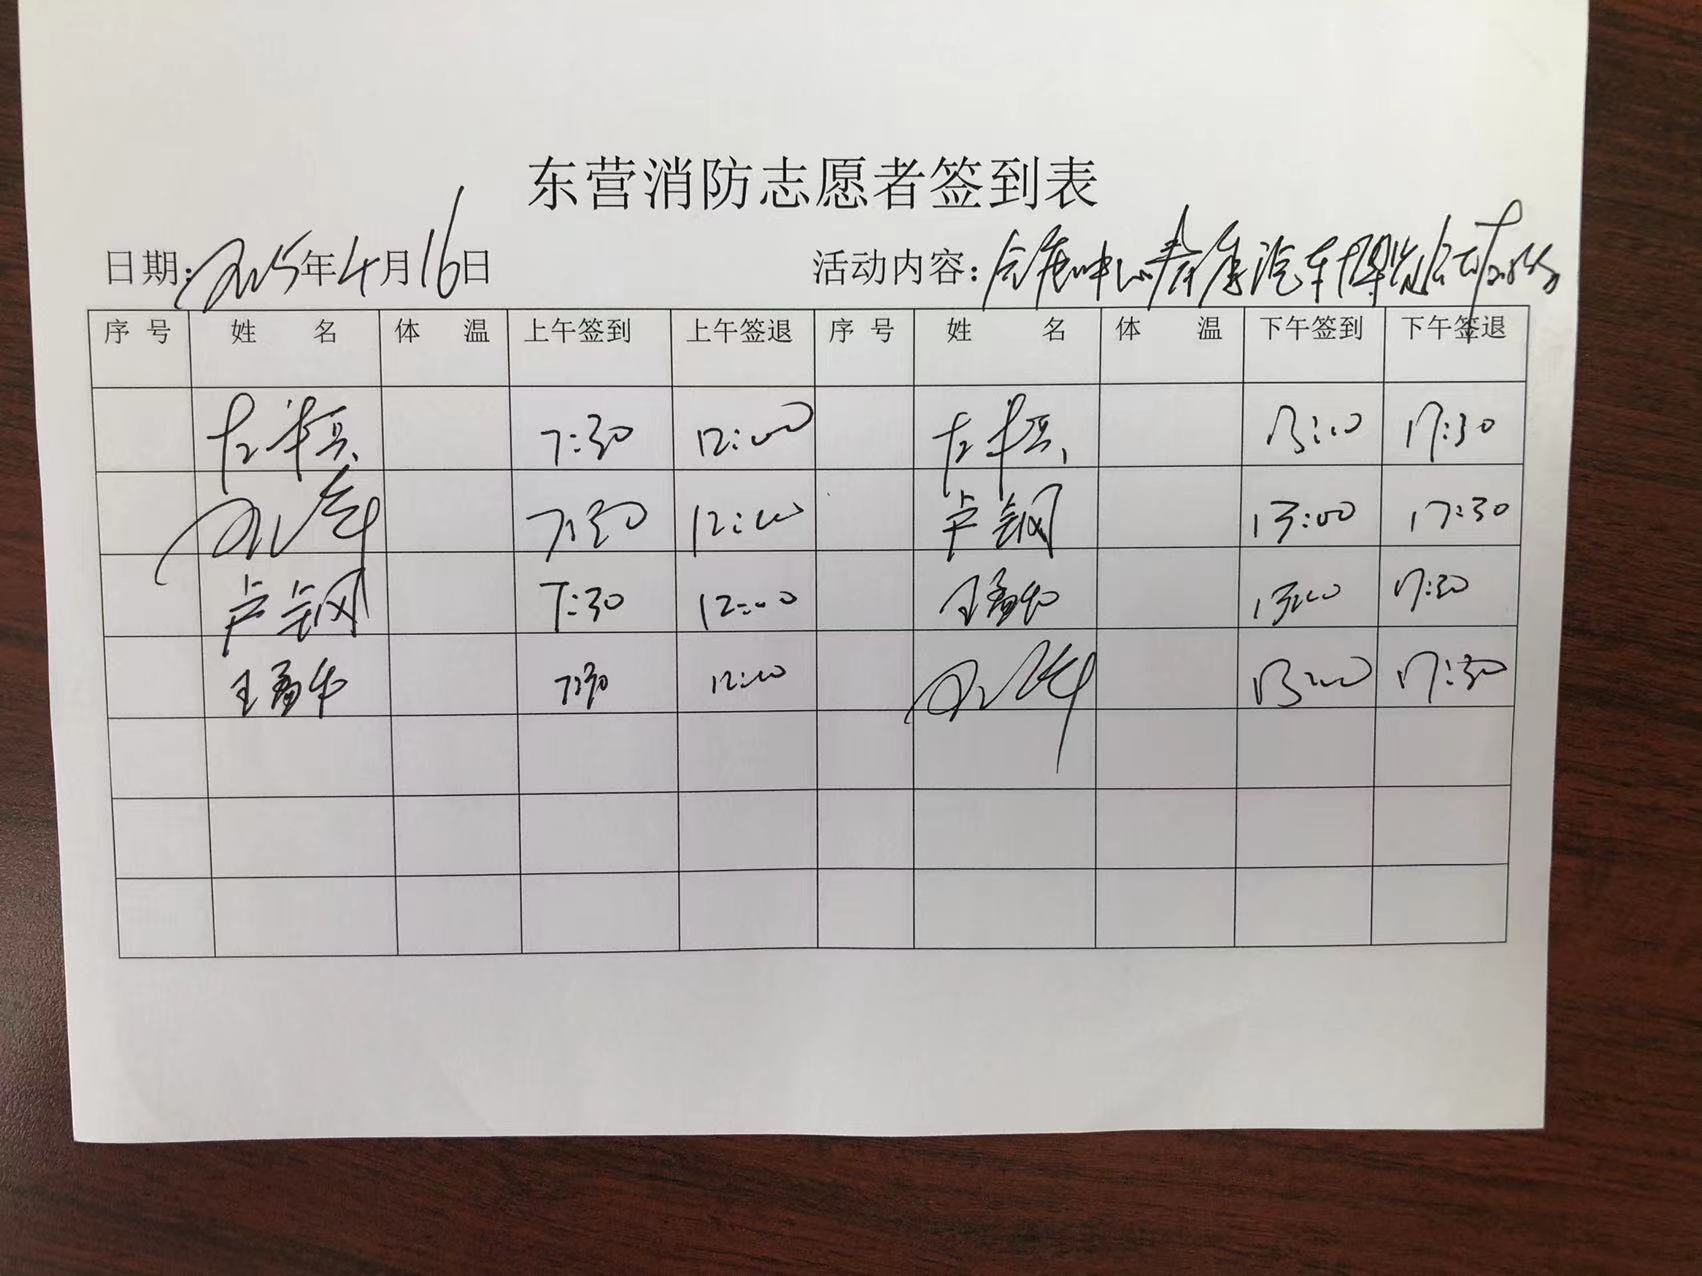 东营消防志愿者签到表
日期:2025年4月16日 活动内容:会展中心春季汽车博览会
序号 姓名 体温 上午签到 上午签退 序号 姓名 体温 下午签到 下午签退
7:30 12:00 13:00 17:30
7:30 12:00 卢 13:00 17:30
卢 7:30 12:00 王 13:00 17:30
王 7:30 12:00 13:00 17:30